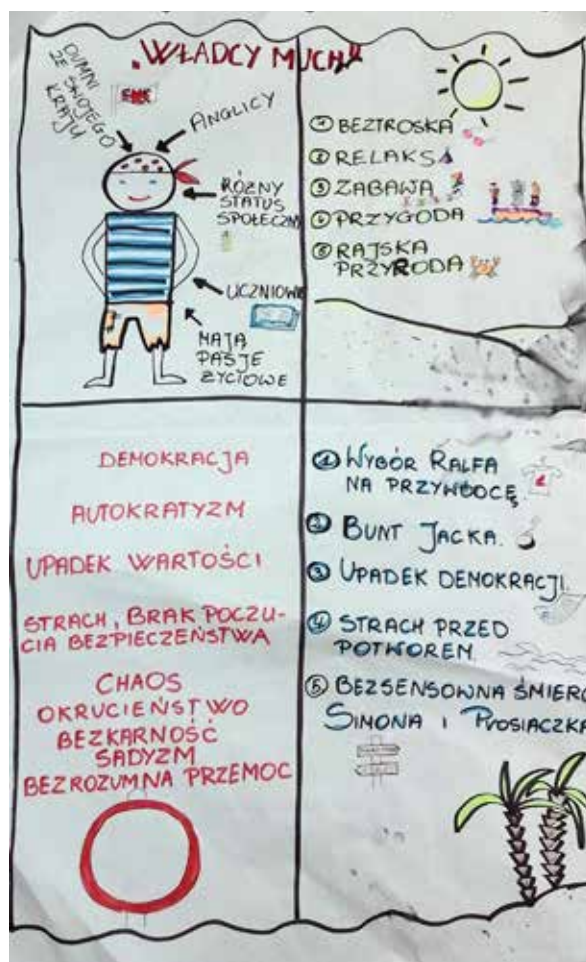 „WŁADCY MUCH”
DUMNI
ZE SWOJEGO
KRAJU
ANGLICY
RÓŻNY
STATUS
SPOŁECZNY
UCZNIOWIE
MAJĄ
PASJE
ŻYCIOWE
① BEZTROSKA
② RELAKS
③ ZABAWA
④ PRZYGODA
⑤ RAJSKA
PRZYRODA
DEMOKRACJA
AUTOKRATYZM
UPADEK WARTOŚCI
STRACH, BRAK POCZU-
CIA BEZPIECZEŃSTWA
CHAOS
OKRUCIEŃSTWO
BEZKARNOŚĆ
SADYZM
BEZROZUMNA PRZEMOC
① WYBÓR RALFA
NA PRZYWÓDCĘ
② BUNT JACKA.
③ UPADEK DEMOKRACJI.
④ STRACH PRZED
POTWOREM
⑤ BEZSENSOWNA ŚMIERĆ
SIMONA I PROSIACZKA